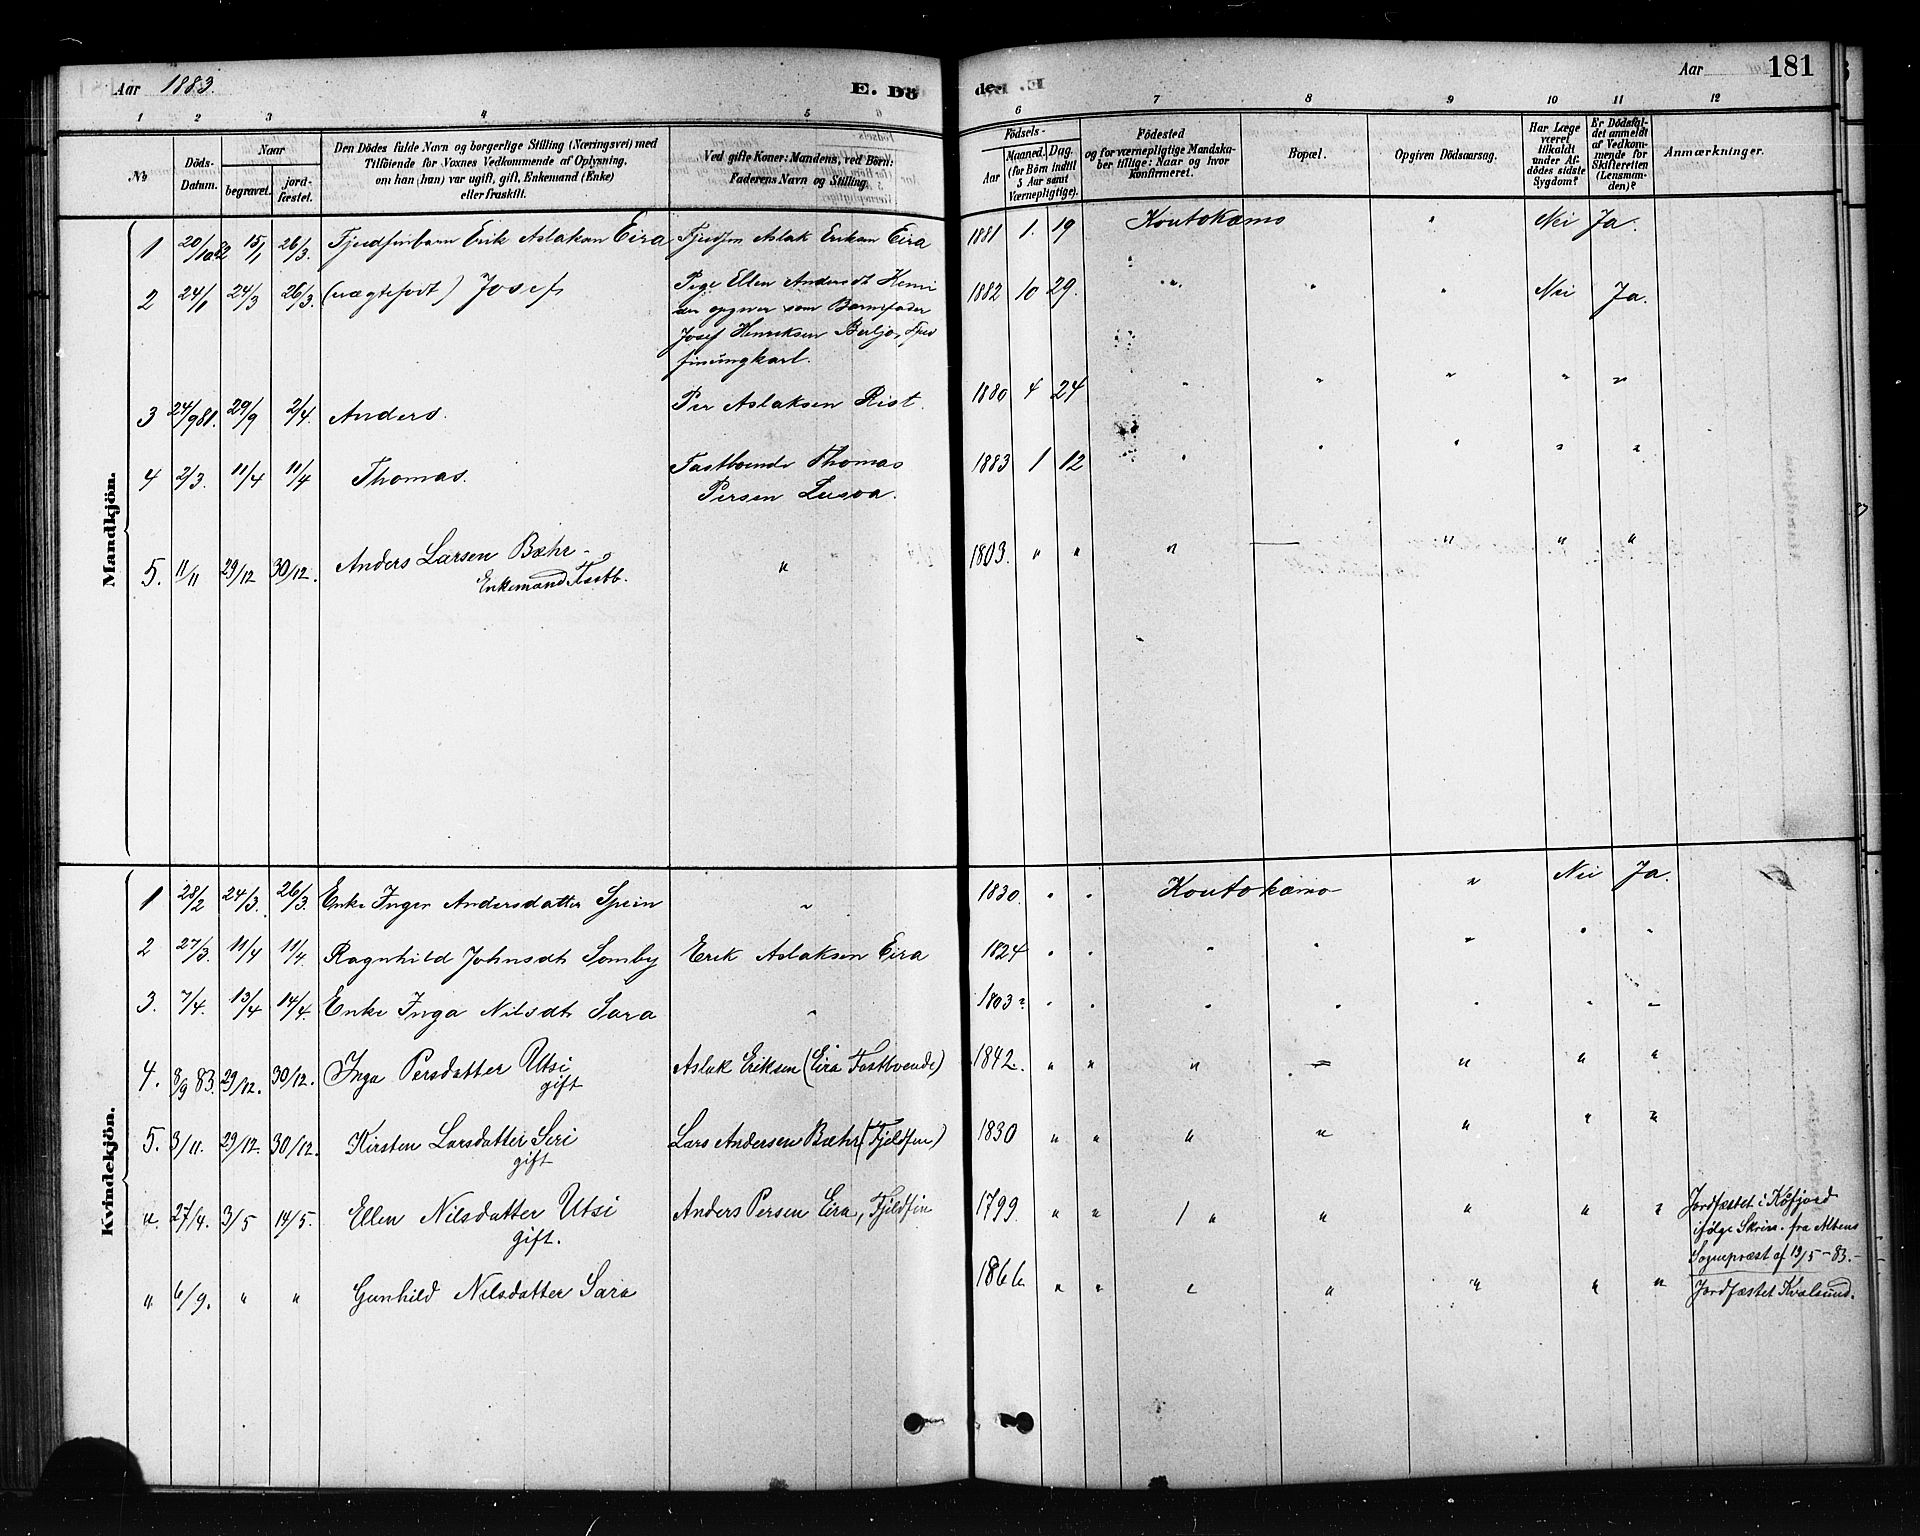 Aar 1883. E. Dö
1 2 3 4 5 6
№ Döds-Datum. Naar begravet. jord-fæstet. Den Dödes fulde Navn og borgerlige Stilling (Næringsvei) med Tilföiende for Voxnes Vedkommende af Oplysning, om han (hun) var ugift, gift, Enkemand (Enke) eller fraskilt. Ved gifte Koner: Mandens, ved Börn: Faderens Navn og Stilling.
Mandkjön.
1 20/10 82 15/1 26/3. Fjeldfinbarn Erik Aslaksen Eira Fjeldfin Aslak Eriksen Eira
2 24/1 24/3 26/3. (uægtefødt) Josef Pige Ellen Andersdt Kemi
der opgiver som Barnefader
Josef Henriksen Berljo, Fjeld
finungkarl.
3 24/9 81. 29/9 2/4. Anders. Per Aslaksen Rist.
4 2/3. 11/4 11/4 Thomas. Fastboende Thomas
Persen Lusoa.
5. 11/11 29/12 30/12. Anders Larsen Bæhr -
Enkemand Fastb. "
Kvindekjön.
1 28/2 24/3. 26/3. Enke Inger Andersdatter Spein "
2 27/3. 11/4 11/4. Ragnhild Johnsdt Somby Erik Aslaksen Eira
3. 7/4. 13/4 14/4. Enke Inga Nilsdt Sara "
4. 8/9 83. 29/12. 30/12. Inga Persdatter Utsi Aslak Eriksen (Eira Fastboende)
gift
5. 3/11. 29/12. 30/12. Kirsten Larsdatter Seri Lars Andersen Bæhr (Fjeldfin)
gift
". 27/4. 3/5 14/5. Ellen Nilsdatter Utsi Anders Persen Eira, Fjeldfin
gift.
". 6/9. " " Gunhild Nilsdatter Sara
de. Aar 181
6 7 8 9 10 11 12
Födsels-Aar Maaned. Dag. (for Börn indtil 5 Aar samt Værnepligtige). Födested og for værnepligtige Mandskaber tillige: Naar og hvor Konfirmeret. Bopæl. Opgiven Dödsaarsag. Har Læge været tilkaldt under Afdödes sidste Sygdom? Er Dödsfaldet anmeldt af Vedkommende for Skifteretten (Lensmanden)? Anmærkninger.
1881 1. 19 Koutokæino " Nei Ja.
1882 10 29. " " " Nei Ja.
1880 4 24 " " " " "
1883 1 12 " " " " "
1803. " " " — " " "
1830. " " Koutokæino " Nei Ja.
1824 " " " " " " "
1803 " " " " " " "
1842. " " " " " " "
1830 " " " " " " "
1799. " " " " " " " Jordfæstet i Kåfjord
ifølge Skriv. fra Altens
Sognepræst af 19/5-83.-
1866 " " " " " " " Jordfæstet Kvalsund.